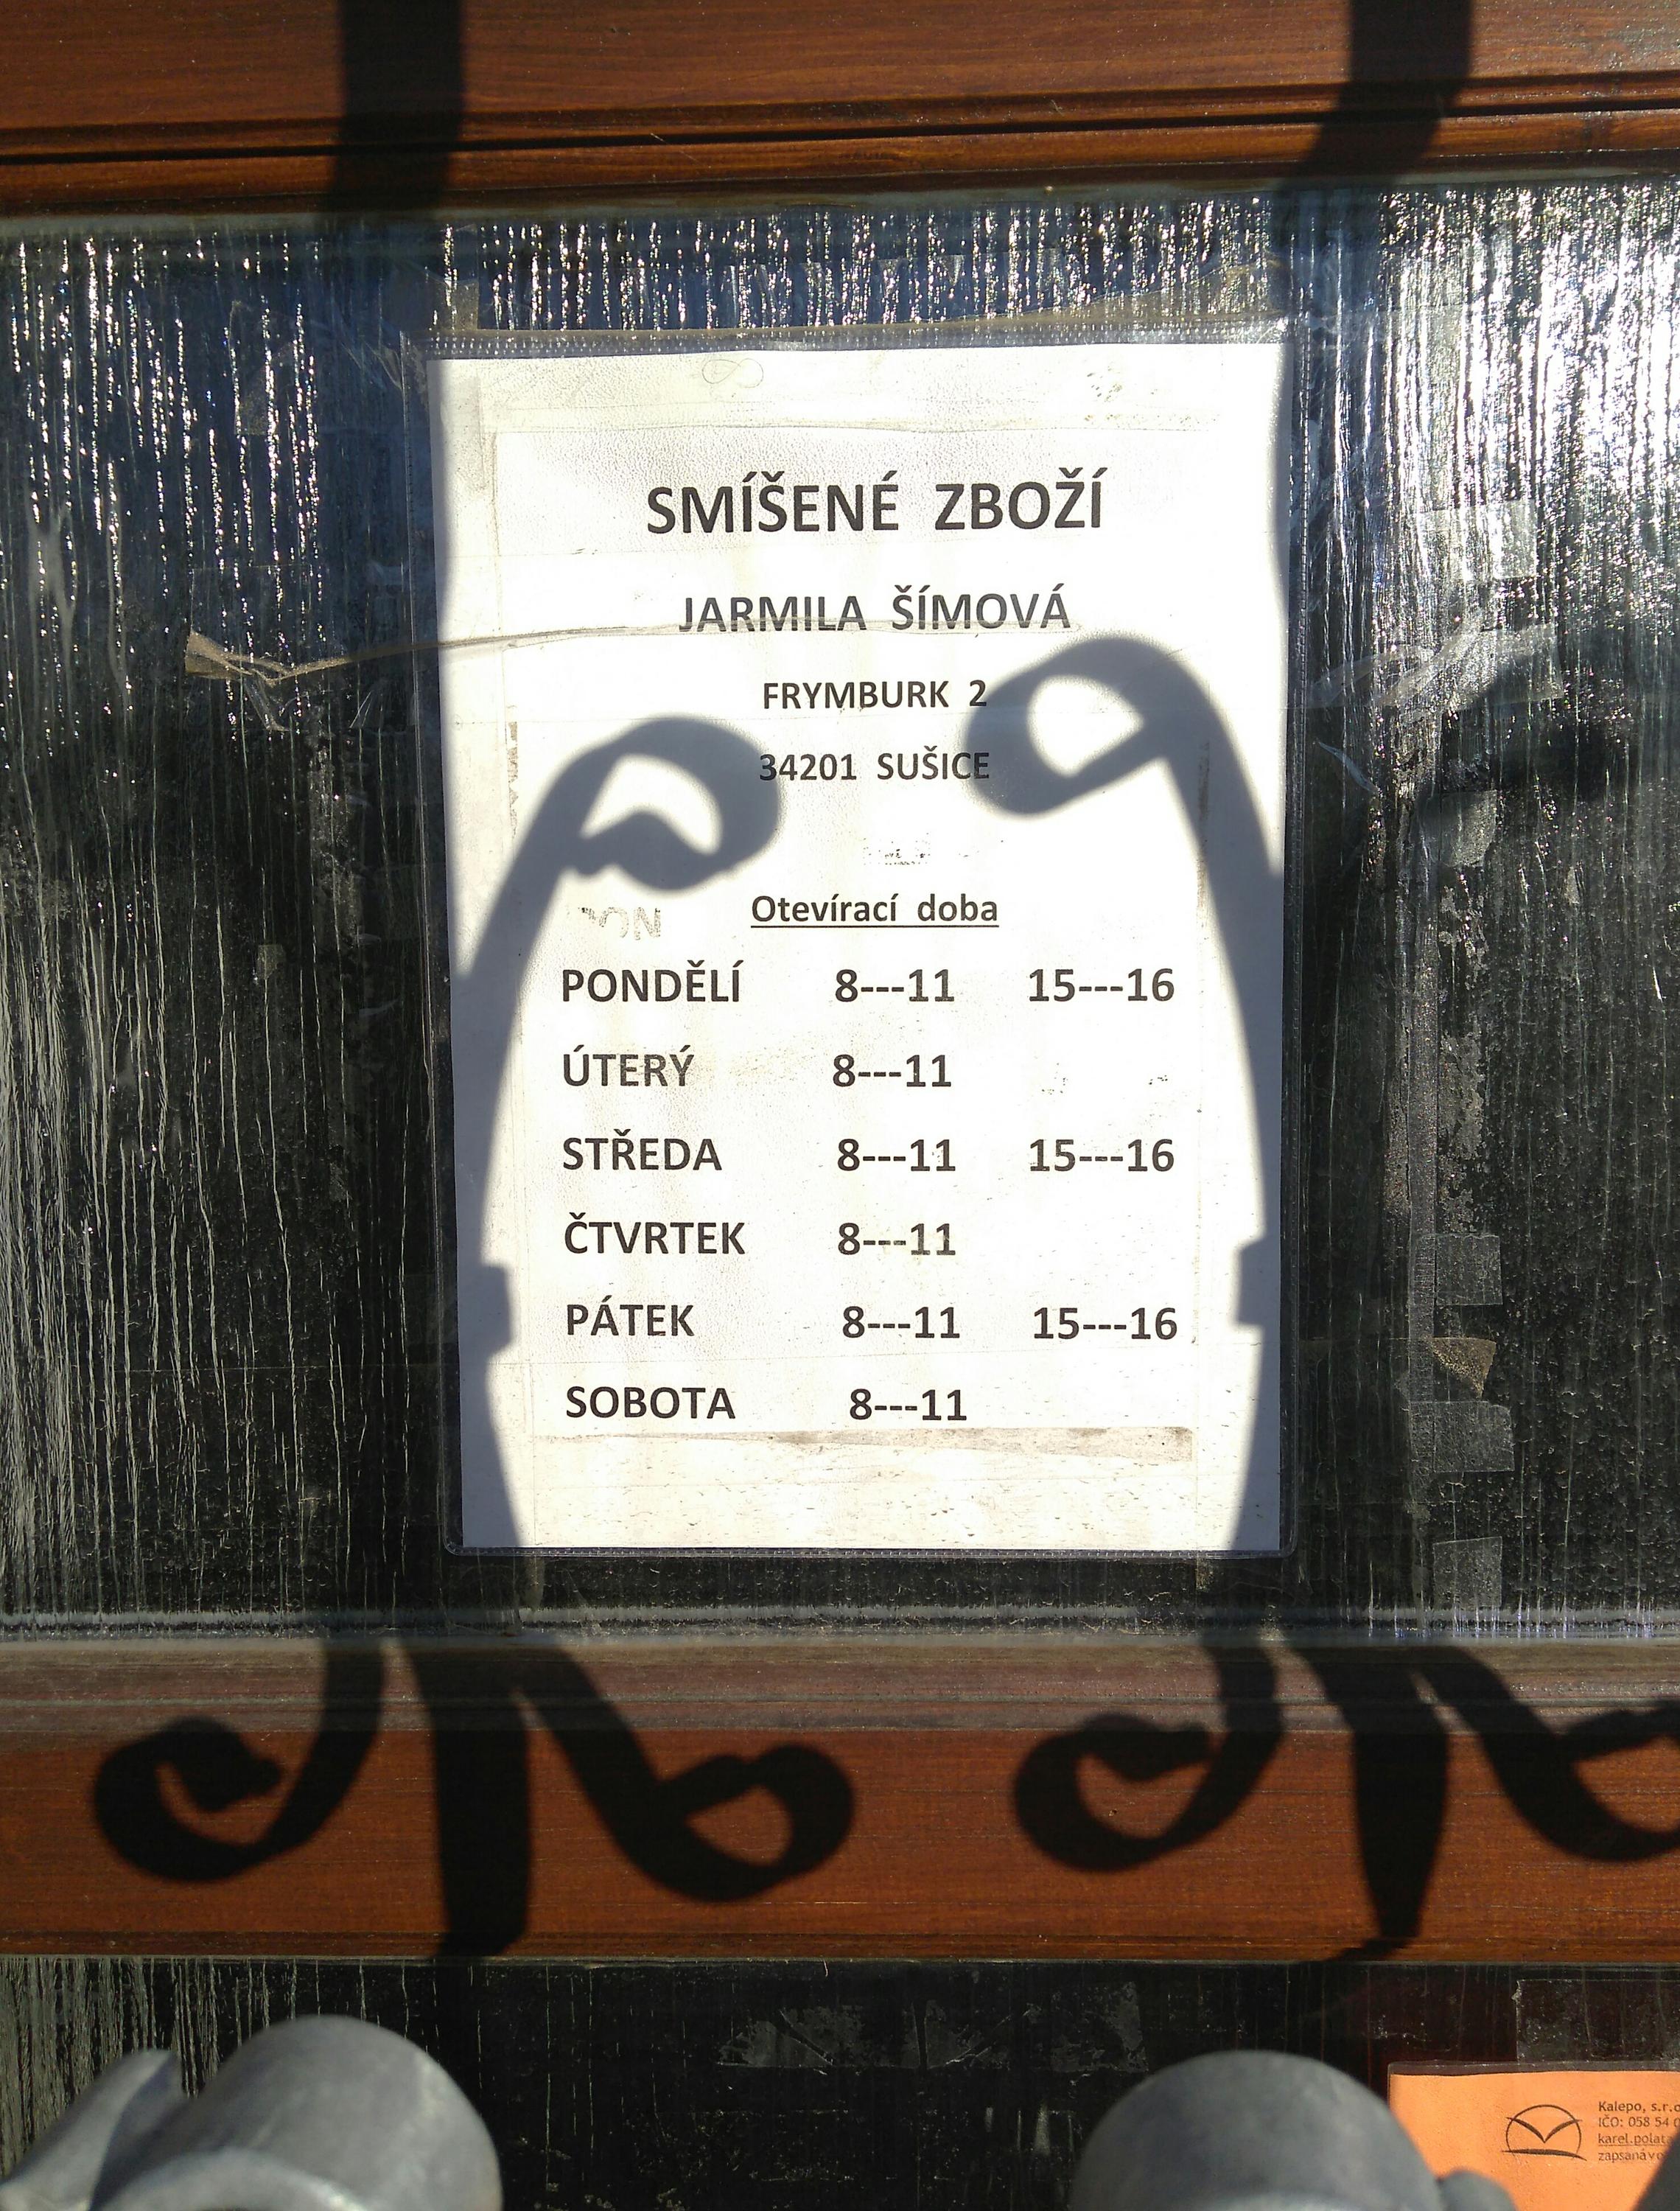 SMÍŠENÉ ZBOŽÍ
JARMILA ŠÍMOVÁ
FRYMBURK 2
34201 SUŠICE
Otevírací doba
PONDĚLÍ 8---11 15---16
ÚTERÝ 8---11
STŘEDA 8---11 15---16
ČTVRTEK 8---11
PÁTEK 8---11 15---16
SOBOTA 8---11
Kalepo, s.r.o
IČO: 058 54
karel.polata